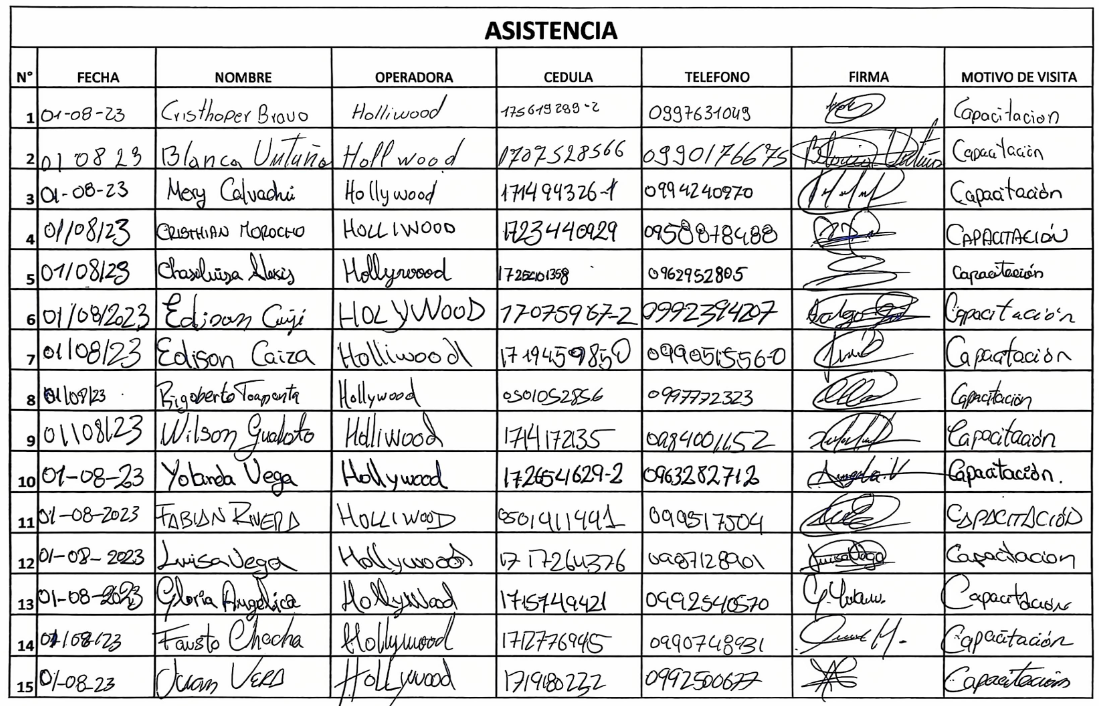 ASISTENCIA
N° FECHA NOMBRE OPERADORA CEDULA TELEFONO FIRMA MOTIVO DE VISITA
1 01-08-23 Cristhoper Bravo Holliwood 175619289-2 0997631049 Capacitacion
2 01 08 23 Blanca Untuña Hollwood 1707528566 0990176675 Capacitación
3 01-08-23 Mery Calvachi Hollywood 171494326-1 0994240970 Capacitación
4 01/08/23 CRISTHIAN MOROCHO HOLLIWOOD 1723440929 0958878488 CAPACITACIÓN
5 01/08/23 Chasoluisa Alexis Hollywoood 0962952805 capacitación
6 01/08/2023 Edison HOLYWOOD 17075967-2 0992394207 Capacitación
7 01/08/23 Edison Caiza Holliwood 1719459850 099051556-0 Capacitación
8 01/08/23 Rigoberto Toapanta Hollywood 0501052856 0997772323 Capacitación
9 01/08/23 Wilson Gualoto Holliwood 1714172135 0984001652 Capacitación
10 01-08-23 Yolanda Vega Hollywood 172654629-2 0963282712 Capacitación.
11 01-08-2023 FABIAN RIVERA HOLLIWOOD 0501411441 099517504 CAPACITACIÓD
12 01-08-2023 Luisa Vega Hollywoood 1717264376 0987128901 Capacitacion
13 01-08-2023 Gloria Angelica Hollywood 1715749421 0992540570 Capacitación
14 01/08/23 Fausto Chacha Hollywood 1712776945 0990748931 Capacitación
15 01-08-23 Juan VERA Hollywood 1719180232 0992500677 Capacitación